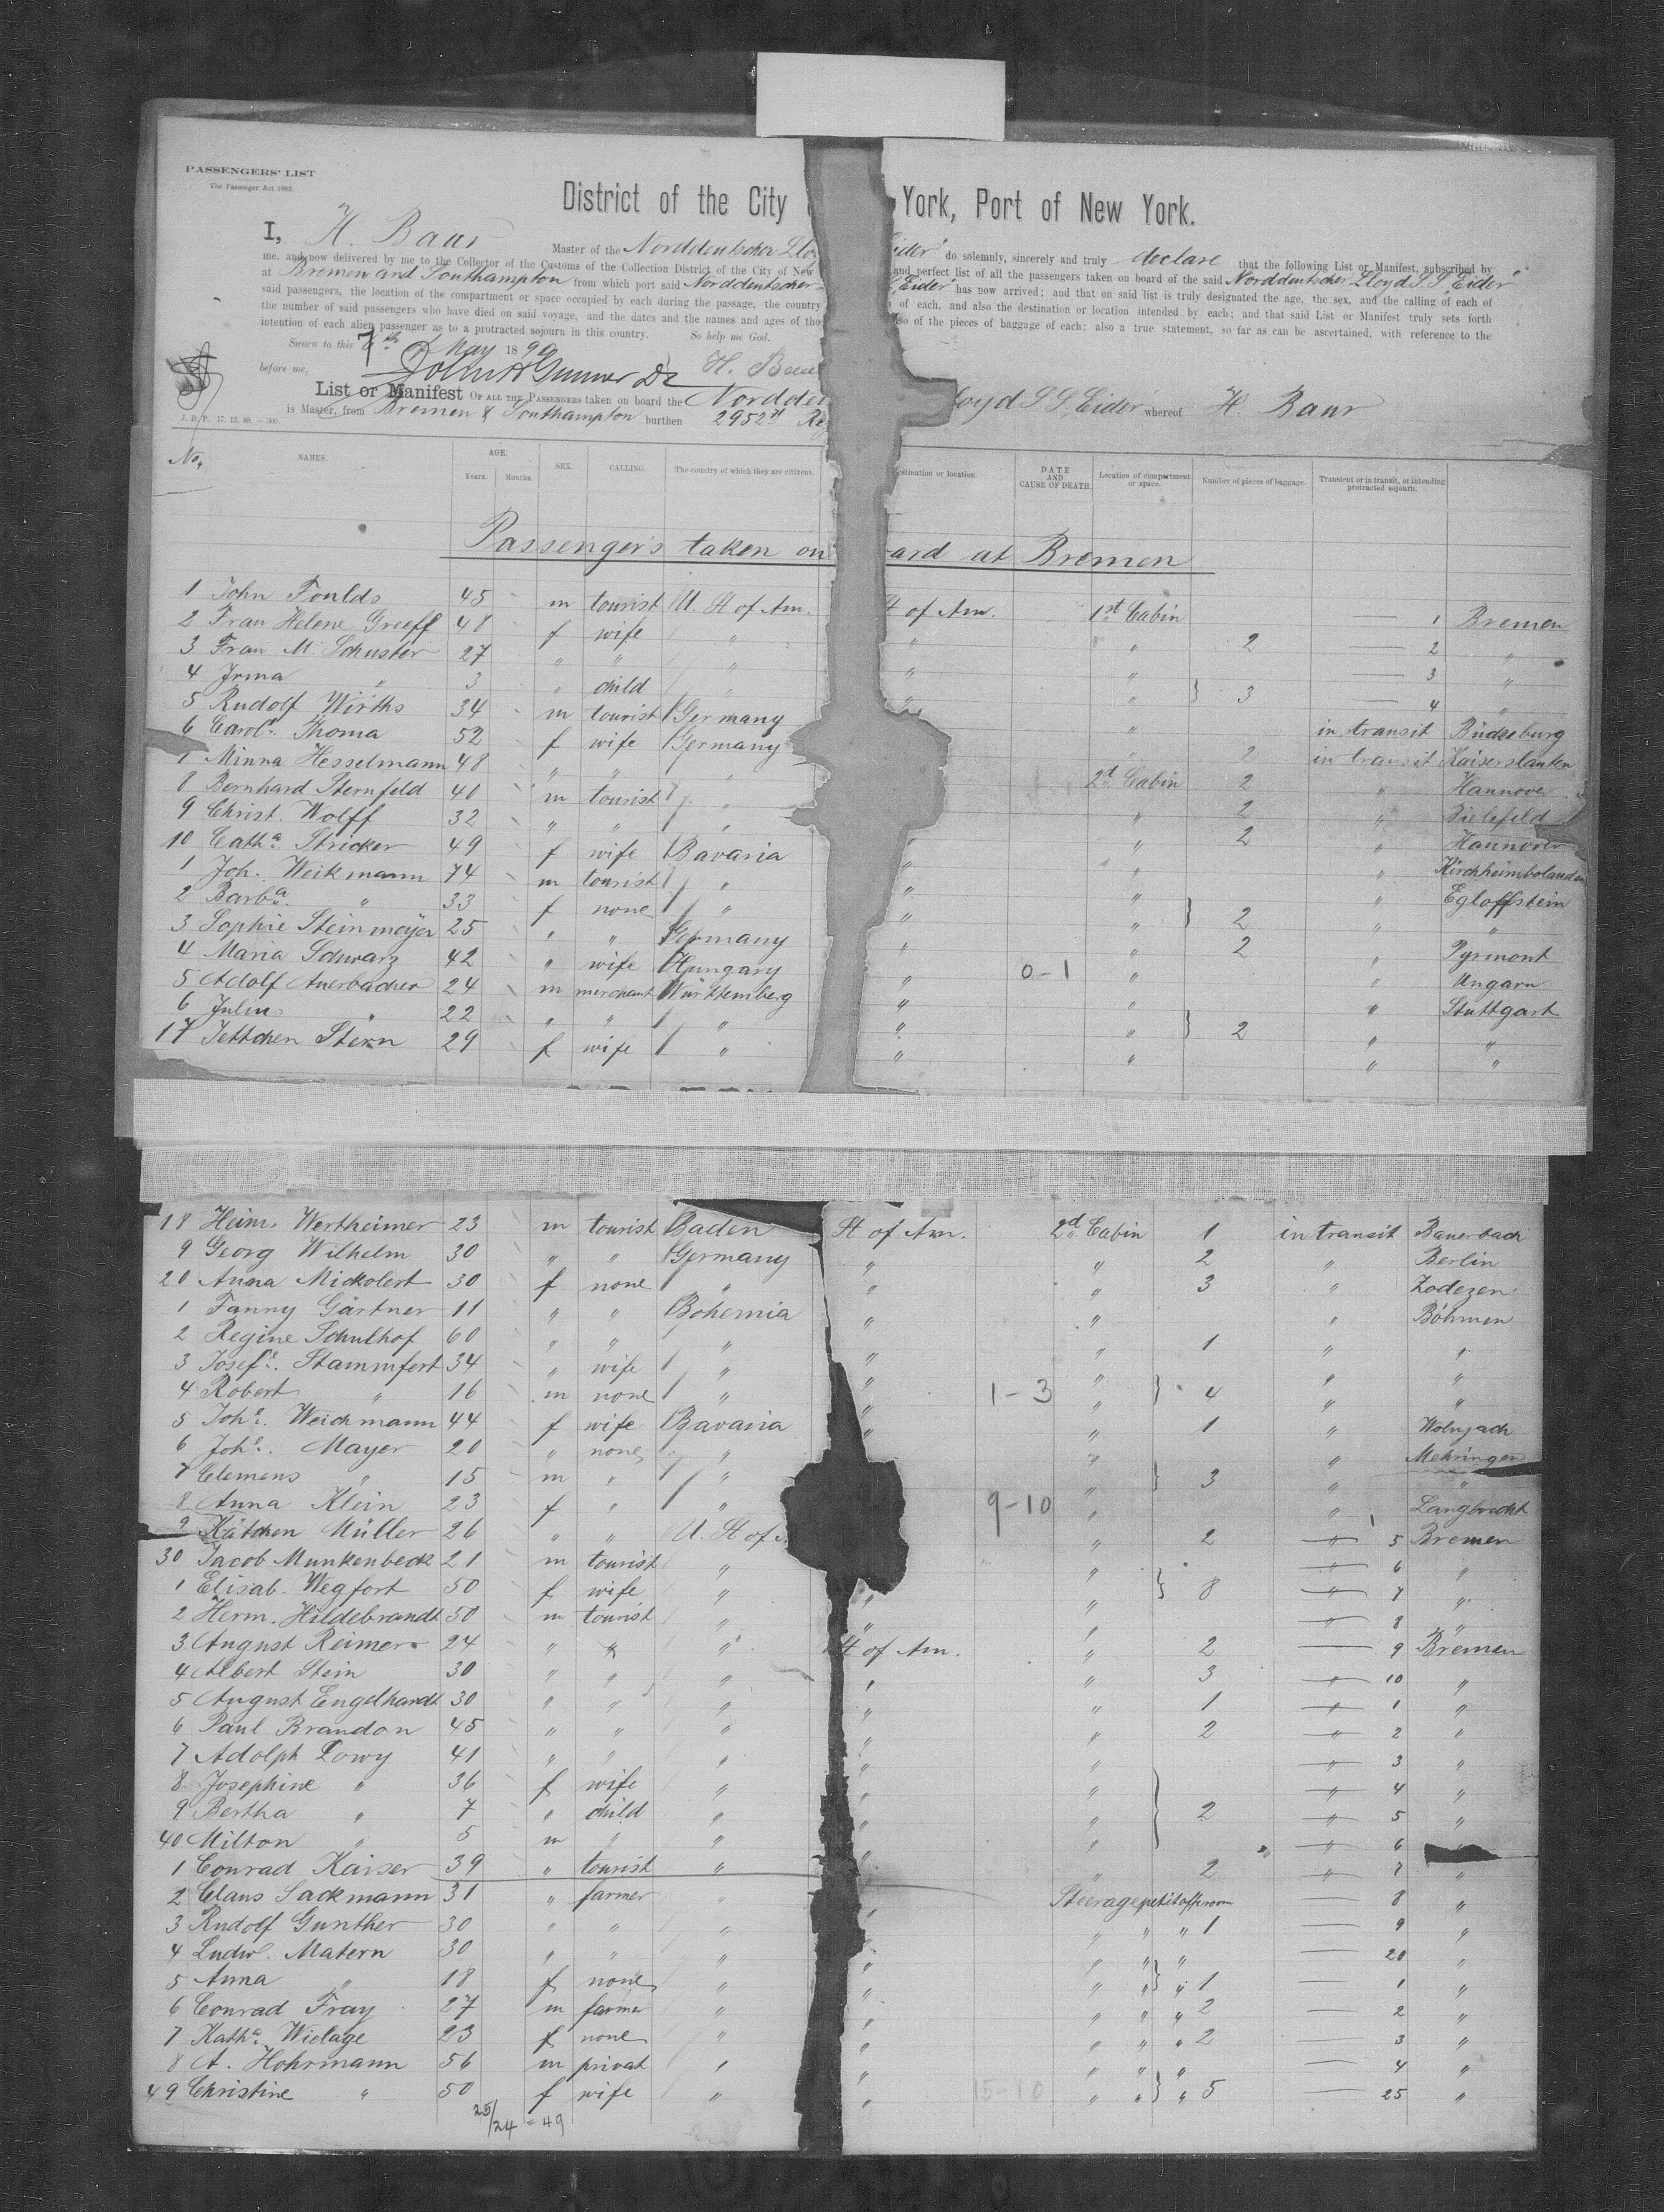 PASSENGERS' LIST
The Passenger Act 1882.
District of the City York, Port of New York.
I, H. Baur Master of the Norddeutscher Llo Eider" do solemnly, sincerely and truly declare that the following List or Manifest, subscribed by
me, and now delivered by me to the Collector of the Customs of the Collection District of the City of New and perfect list of all the passengers taken on board of the said Norddeutscher Lloyd S.S. Eider"
at Bremen and Southampton from which port said Norddeutscher Eider" has now arrived; and that on said list is truly designated the age, the sex, and the calling of each of
said passengers, the location of the compartment or space occupied by each during the passage, the country of each, and also the destination or location intended by each; and that said List or Manifest truly sets forth
the number of said passengers who have died on said voyage, and the dates and the names and ages of tho so of the pieces of baggage of each; also a true statement, so far as can be ascertained, with reference to the
intention of each alien passenger as to a protracted sojourn in this country. So help me God.
Sworn to this 7th May 1890 H. Baur
before me,
List or Manifest OF ALL THE PASSENGERS taken on board the Nordde loyd S.S. Eider" whereof H. Baur
is Master, from Bremen & Southampton burthen 2952 Re
J. D. P. 17. 12. 89. — 300.
No. NAMES. AGE. Years. Months. SEX. CALLING. The country of which they are citizens. estination or location. DATE AND CAUSE OF DEATH. Location of compartment or space. Number of pieces of baggage. Transient or in transit, or intending protracted sojourn.
Passengers taken on ard at Bremen
1 John Foulds 45 m tourist U. St of Am. St of Am. 1st Cabin — 1 Bremen
2 Frau Helene Greeff 48 f wife " " " 2 — 2 "
3 Frau M. Schuster 27 " " " " " — 3 "
4 Irma " 3 " child " " " } 3 — 4
5 Rudolf Wirths 34 m tourist Germany " in transit Bückeburg
6 Carole. Thoma 52 f wife Germany " 2 in transit Kaiserslautern
7 Minna Hesselmann 48 " " " 2d Cabin 2 " Hannover
8 Bernhard Sternfeld 40 m tourist " " 2 " Bielefeld
9 Christ. Wolff 32 " " " " 2 " Hannover
10 Catha. Stricker 49 f wife Bavaria " " " Kirchheimbolanden
1 Joh. Weikmann 74 m tourist " " " " Egloffstein
2 Barba. " 33 f none " " " } 2 " "
3 Sophie Steinmeyer 25 " " Germany " " 2 " Pyrmont
4 Maria Schwarz 42 " wife Hungary " 0-1 " " Ungarn
5 Adolf Auerbacher 24 m merchant Württemberg " " " Stuttgart
6 Julius " 22 " " " " " } 2 " "
17 Jettchen Stern 29 f wife " " " " "
18 Heinr. Wertheimer 23 m tourist Baden St of Am. 2d Cabin 1 in transit Bauerbach
9 Georg Wilhelm 30 " " Germany " " 2 " Berlin
20 Anna Mickolert 30 f none " " " 3 " Zodezen
1 Fanny Gärtner 11 " " Bohemia " " " Böhmen
2 Regine Schulhof 60 " " " " " 1 " "
3 Josefe. Stammfert 34 " wife " " " " "
4 Robert " 16 m none " " 1-3 " } 4 " "
5 Johe. Weichmann 44 f wife Bavaria " " 1 " Wolnzach
6 Johe. Mayer 20 " none " " " Mehringen
7 Clemens " 15 m " " " } 3 " "
8 Anna Klein 23 f " " 9-10 " " Langbrecht
9 Kätchen Müller 26 " " U. St of " 2 — 5 Bremen
30 Jacob Munkenbeck 21 m tourist " " — 6 "
1 Elisab. Wegfort 50 f wife " " " } 8 — 7 "
2 Herm. Hildebrandt 50 m tourist " " " — 8 "
3 August Reimers 24 " " " St of Am. " 2 — 9 Bremen
4 Albert Stein 30 " " " " " 3 — 10 "
5 August Engelhardt 30 " " " " " 1 — 1 "
6 Paul Brandon 45 " " " " " 2 — 2 "
7 Adolph Lowy 41 " " " " " — 3 "
8 Josephine " 36 f wife " " — 4 "
9 Bertha " 7 " child " " " } 2 — 5 "
40 Milton " 5 m " " " " — 6 "
1 Conrad Kaiser 39 " tourist " " 2 — 7 "
2 Claus Sackmann 31 " farmer " " Steerage — 8 "
3 Rudolf Gunther 30 " " " " " " " 1 — 9 "
4 Ludw. Matern 30 " " " " " " " — 20 "
5 Anna " 18 f none " " " " } " 1 — 1 "
6 Conrad Fray 27 m farmer " " " " " 2 — 2 "
7 Katha. Wielage 23 f none " " " " " 2 — 3 "
8 A. Hohrmann 56 m privat " " " " " — 4 "
49 Christine " 50 f wife " " 15-10 " " } " 5 — 25 "
25/24 = 49